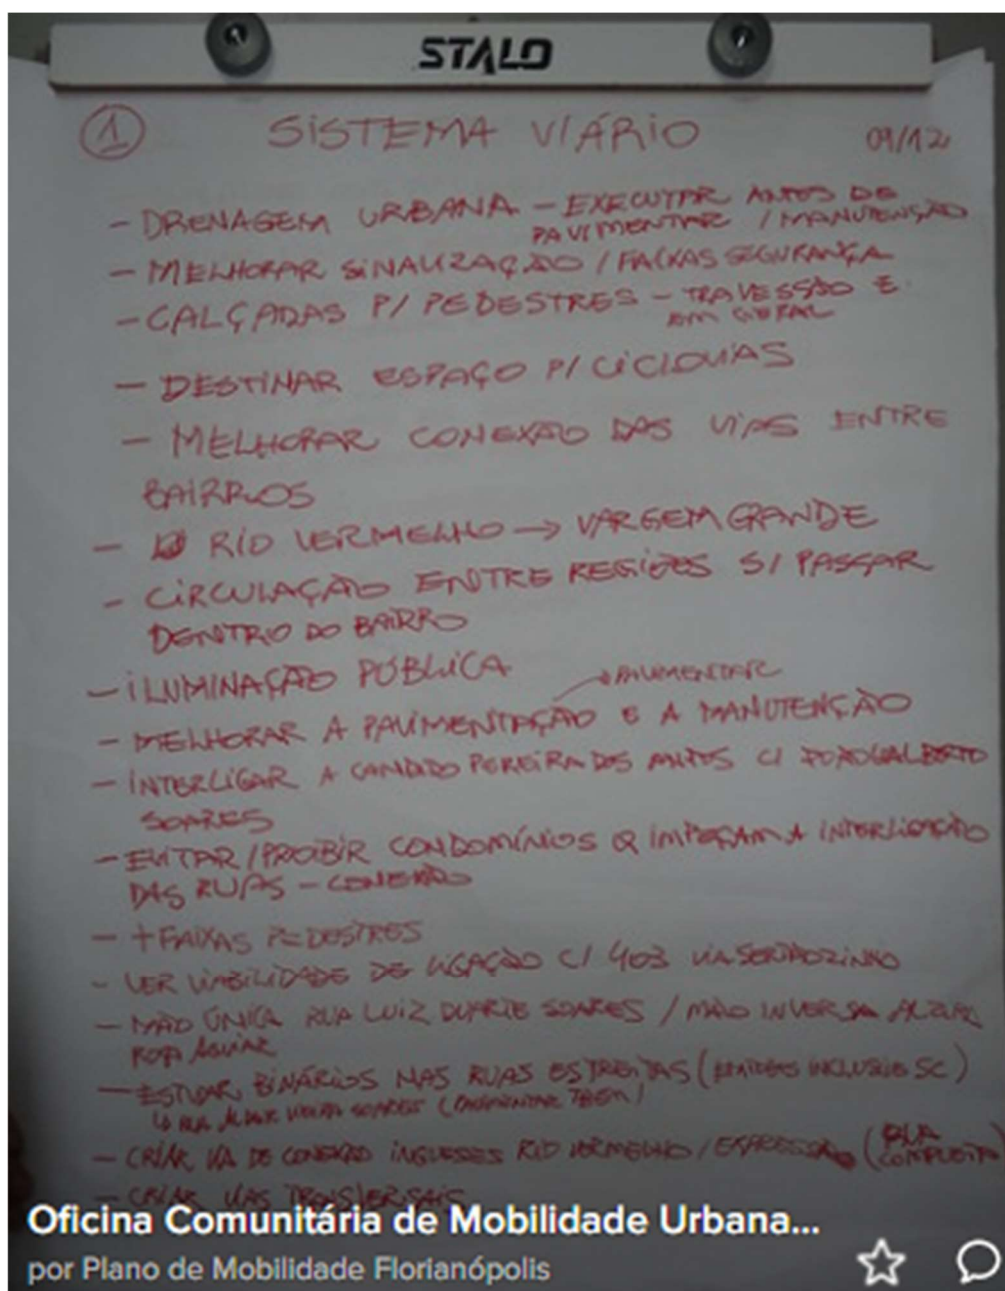 STALO
1 SISTEMA VIÁRIO 09/12
- DRENAGEM URBANA - EXECUTAR ANTES DE
PAVIMENTAR / MANUTENÇÃO
- MELHORAR SINALIZAÇÃO / FAIXAS SEGURANÇA
- CALÇADAS P/ PEDESTRES - TRAVESSÃO E
EM GERAL
- DESTINAR ESPAÇO P/ CICLOVIAS
- MELHORAR CONEXÃO DAS VIAS ENTRE
BAIRROS
- RIO VERMELHO → VARGEM GRANDE
- CIRCULAÇÃO ENTRE REGIÕES S/ PASSAR
DENTRO DO BAIRRO
- ILUMINAÇÃO PÚBLICA
→ PAVIMENTAR
- MELHORAR A PAVIMENTAÇÃO E A MANUTENÇÃO
- INTERLIGAR A CANDIDO PEREIRA DOS ANJOS C/
SOARES
- EVITAR/PROIBIR CONDOMÍNIOS Q IMPEÇAM A INTERLIGAÇÃO
DAS RUAS - CONEXÃO
- + FAIXAS PEDESTRES
- VER VIABILIDADE DE LIGAÇÃO C/ 403 VIA
- MÃO ÚNICA RUA LUIZ DUARTE SOARES / MÃO INVERSA
AGUIAR
- BINÁRIOS NAS RUAS ESTREITAS ( INCLUSIVE SC)
SOARES (
- CRIAR VIA DE CONEXÃO INGLESES RIO VERMELHO / EXPRESSA (
COMPLETA)
- CRIAR VIAS TRANSVERSAIS
Oficina Comunitária de Mobilidade Urbana...
por Plano de Mobilidade Florianópolis